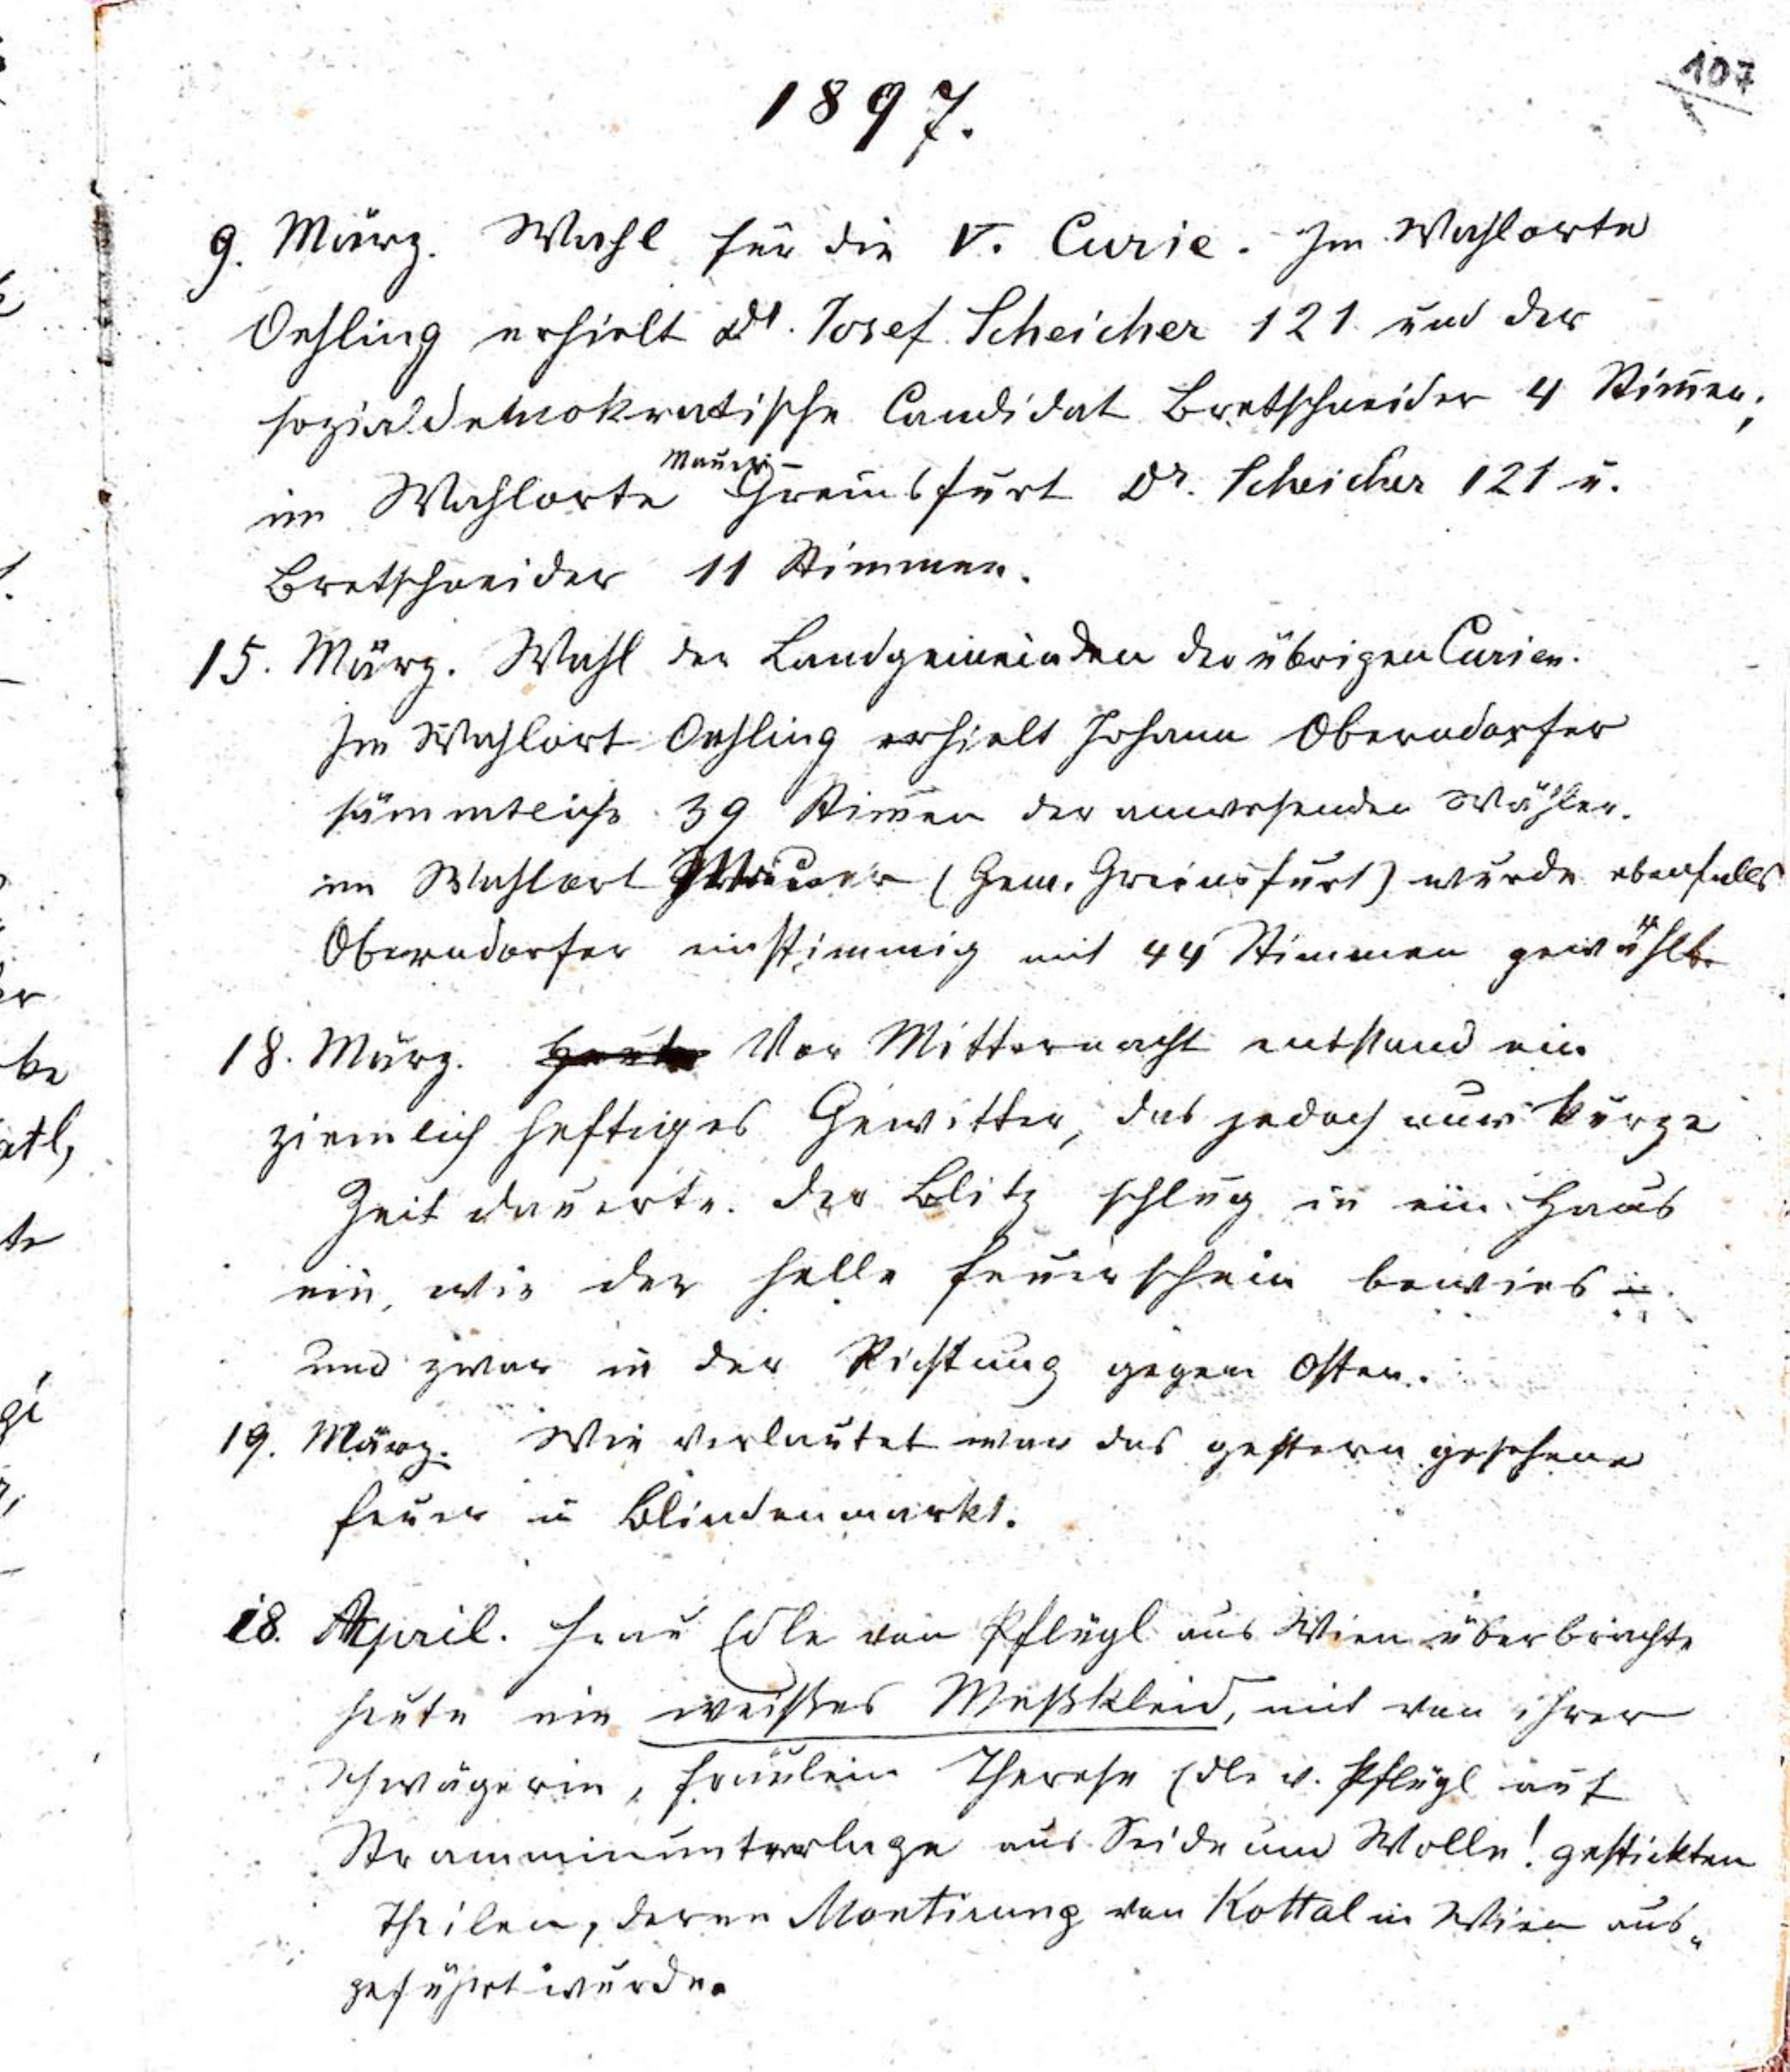 107
1897.
9. März. Wahl für die V. Curie. Im Wahlorte
Oehling erhielt Dr. Josef Scheicher 121 und der
sozialdemokratische Candidat Bretschneider 4 Stim̄en;
Mauer-
im Wahlorte Greinsfurt Dr. Scheicher 121 u.
Bretschneider 11 Stimmen.
15. März. Wahl der Landgemeinden der übrigen Curien.
Im Wahlort Oehling erhielt Johann Oberndorfer
sämmtliche 39 Stim̄en der anwesenden Wähler.
im Wahlort Mauer (Gem. Greinsfurt) wurde ebenfalls
Oberndorfer einstimmig mit 44 Stimmen gewählt.
18. März. Heute Vor Mitternacht entstand ein
ziemlich heftiges Gewitter, das jedoch nur kurze
Zeit dauerte. Der Blitz schlug in ein Haus
ein, wie der helle Feuerschein bewies
und zwar in der Richtung gegen Osten.
19. März. Wie verlautet war das gestern gesehene
Feuer in Blindenmarkt.
18. April. Frau Edle von Pflügl aus Wien überbrachte
heute ein weißes Meßkleid, mit von ihrer
Schwägerin, Fräulein Therese Edle v. Pflügl auf
Stramminunterlage aus Seide und Wolle! gestickten
Theilen, deren Montirung von Kottal in Wien aus„
geführt wurde.